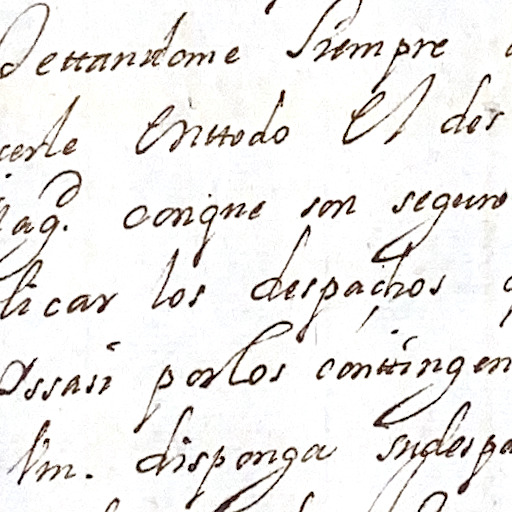 ettandome siempre
cerle enttodo el des
ag.d conque son seguro
licar los despachos q
assasi porlos conttingen
Vm. disponga sudespa